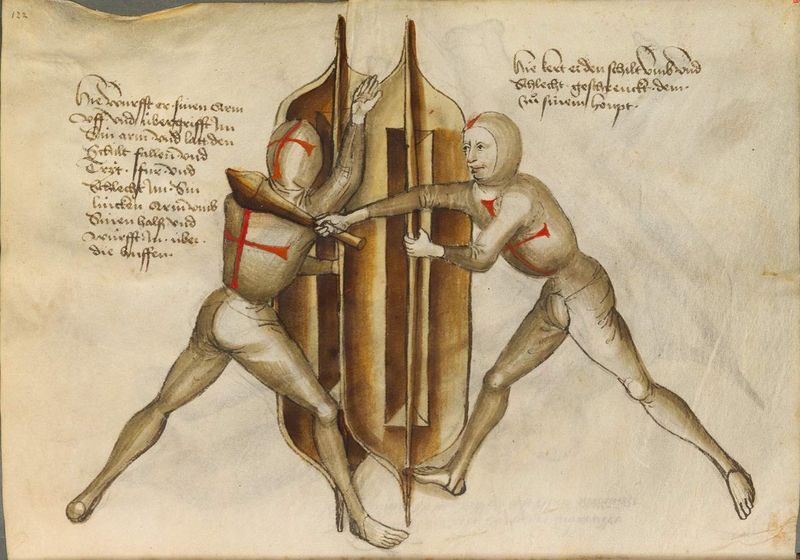 122
Hie wurfft er sinen Arm
vff vnd übergrifft Im
Sin arm vnd latt den
Schilt fallen vnd
Tryt fur vnd
Schlecht Im Sin
lincken Arm vmb
Sinen halß vnd
würfft In über
die huffen
Hie kert er den schilt vmb vnd
Schlecht geschrenckt dem
zu sinem houpt